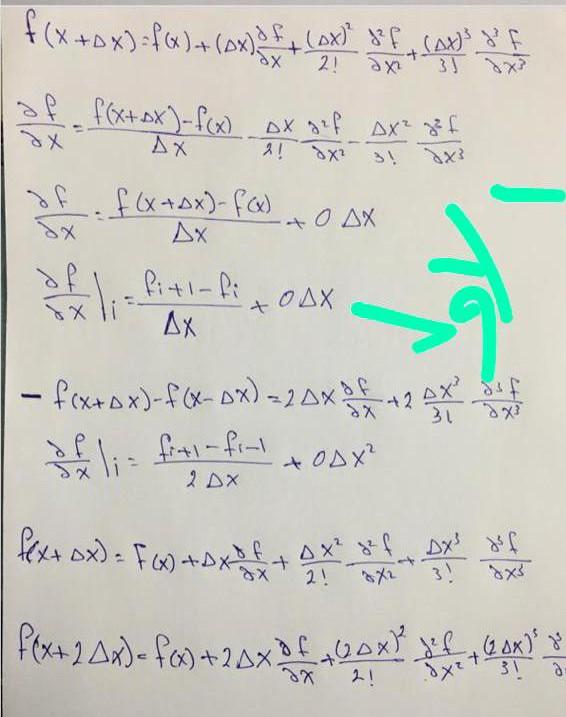 f(x+Δx)=f(x)+(Δx)∂f/∂x+(Δx)²/2! ∂²f/∂x²+(Δx)³/3! ∂³f/∂x³
∂f/∂x=f(x+Δx)-f(x)/Δx-Δx/2! ∂²f/∂x²-Δx²/3! ∂³f/∂x³
∂f/∂x=f(x+Δx)-f(x)/Δx+0Δx
∂f/∂x|i=fi+1-fi/Δx+0Δx
-f(x+Δx)-f(x-Δx)=2Δx∂f/∂x+2Δx³/3! ∂³f/∂x³
∂f/∂x|i=fi+1-fi-1/2Δx+0Δx²
f(x+Δx)=F(x)+Δx∂f/∂x+Δx²/2! ∂²f/∂x²+Δx³/3! ∂³f/∂x³
f(x+2Δx)=f(x)+2Δx∂f/∂x+(2Δx)²/2! ∂²f/∂x²+(2Δx)³/3!